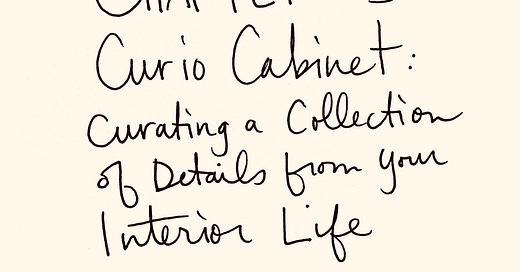 Curio Cabinet:
Curating a Collection
of Details from your
Interior Life